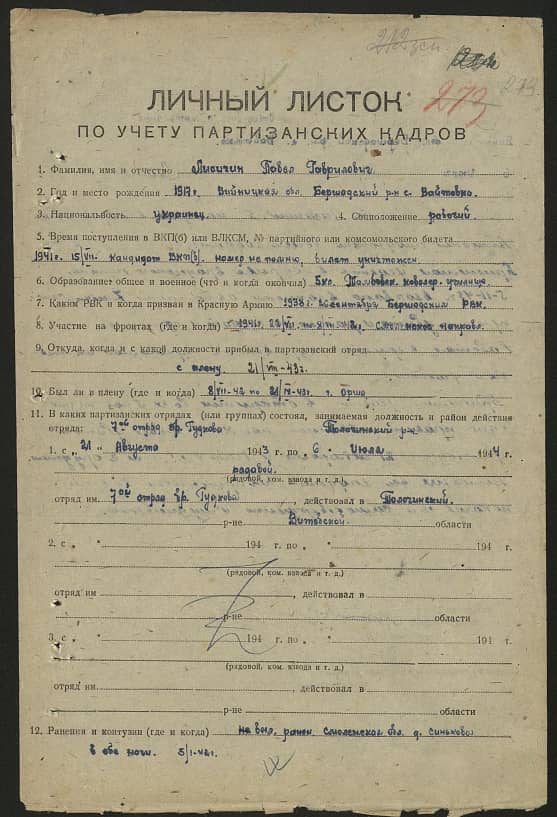 212 зсп.
273
273.
ЛИЧНЫЙ ЛИСТОК
ПО УЧЕТУ ПАРТИЗАНСКИХ КАДРОВ
1. Фамилия, имя и отчество Лисичин Павел Гаврилович
2. Год и место рождения 1917г. Вийницкая обл. Бершадский р-н с. Вайтовка.
3. Национальность украинец. 4. Соцположение рабочий.
5. Время поступления в ВКП(б) или ВЛКСМ, № партийного или комсомольского билета
1941г. 15/VII. кандидат ВКП(б). номер не помню, билет уничтожен.
6. Образование общее и военное (что и когда окончил) 5кл. Тамбовск. кавалер. училище
7. Каким РВК и когда призван в Красную Армию 1938г. 26 сентября Бершадским РВК.
8. Участие на фронтах (где и когда) с 1941г. 22/VII. по 8/VII-42г. Смоленское направл.
9. Откуда, когда и с какой должности прибыл в партизанский отряд
с плену. 21/VIII-43г.
10. Был ли в плену (где и когда) 8/VII-42 по 21/VIII-43г. г. Орша.
11. В каких партизанских отрядах (или группах) состоял, занимаемая должность и район действия
отряда: 7ой отряд бр. Гудкова Толочинский р-н
1. с „21„ Августа 1943 г. по „6„ Июля 1944 г.
рядовой.
(рядовой, ком. взвода и т. д.)
отряд им. 7ой отряд бр. Гудкова, действовал в Толочинский.
р-не Витебской области
2. с „ 194 г. по „ 194 г.
(рядовой, ком. взвода и т. д.)
отряд им , действовал в
р-не области
3. с „ 194 г. по „ 194 г.
(рядовой, ком. взвода и т. д.)
отряд им. , действовал в
р-не области
12. Ранения и контузии (где и когда) ранен Смоленская обл. д. Синьково
в обе ноги. 5/I-42г.